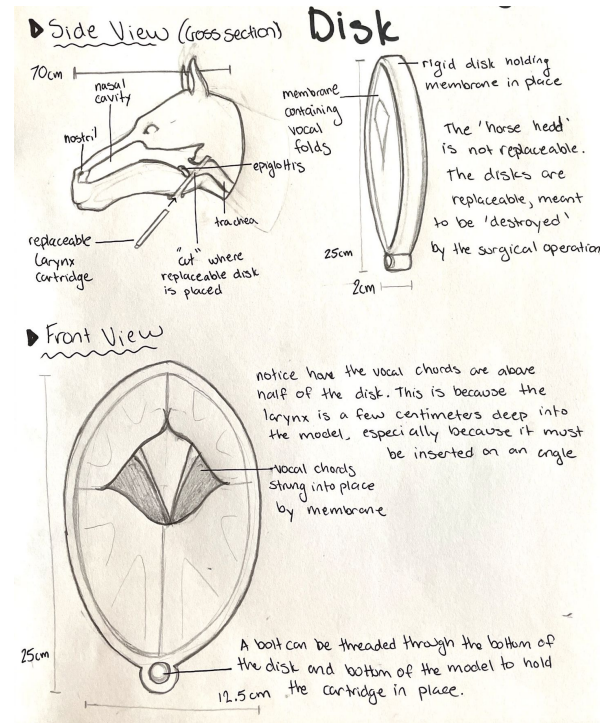 Side View (Cross section)
Disk
70cm
nasal
cavity
nostril
epiglottis
trachea
replaceable
larynx
cartridge
"cut" where
replaceable disk
is placed
membrane
containing
vocal
folds
rigid disk holding
membrane in place
The 'horse head'
is not replaceable.
The disks are
replaceable, meant
to be 'destroyed'
by the surgical operation
25cm
2cm
Front View
notice how the vocal chords are above
half of the disk. This is because the
larynx is a few centimeters deep into
the model, especially because it must
be inserted on an angle
vocal chords
strung into place
by membrane
A bolt can be threaded through the bottom of
the disk and bottom of the model to hold
the cartridge in place.
25cm
12.5cm